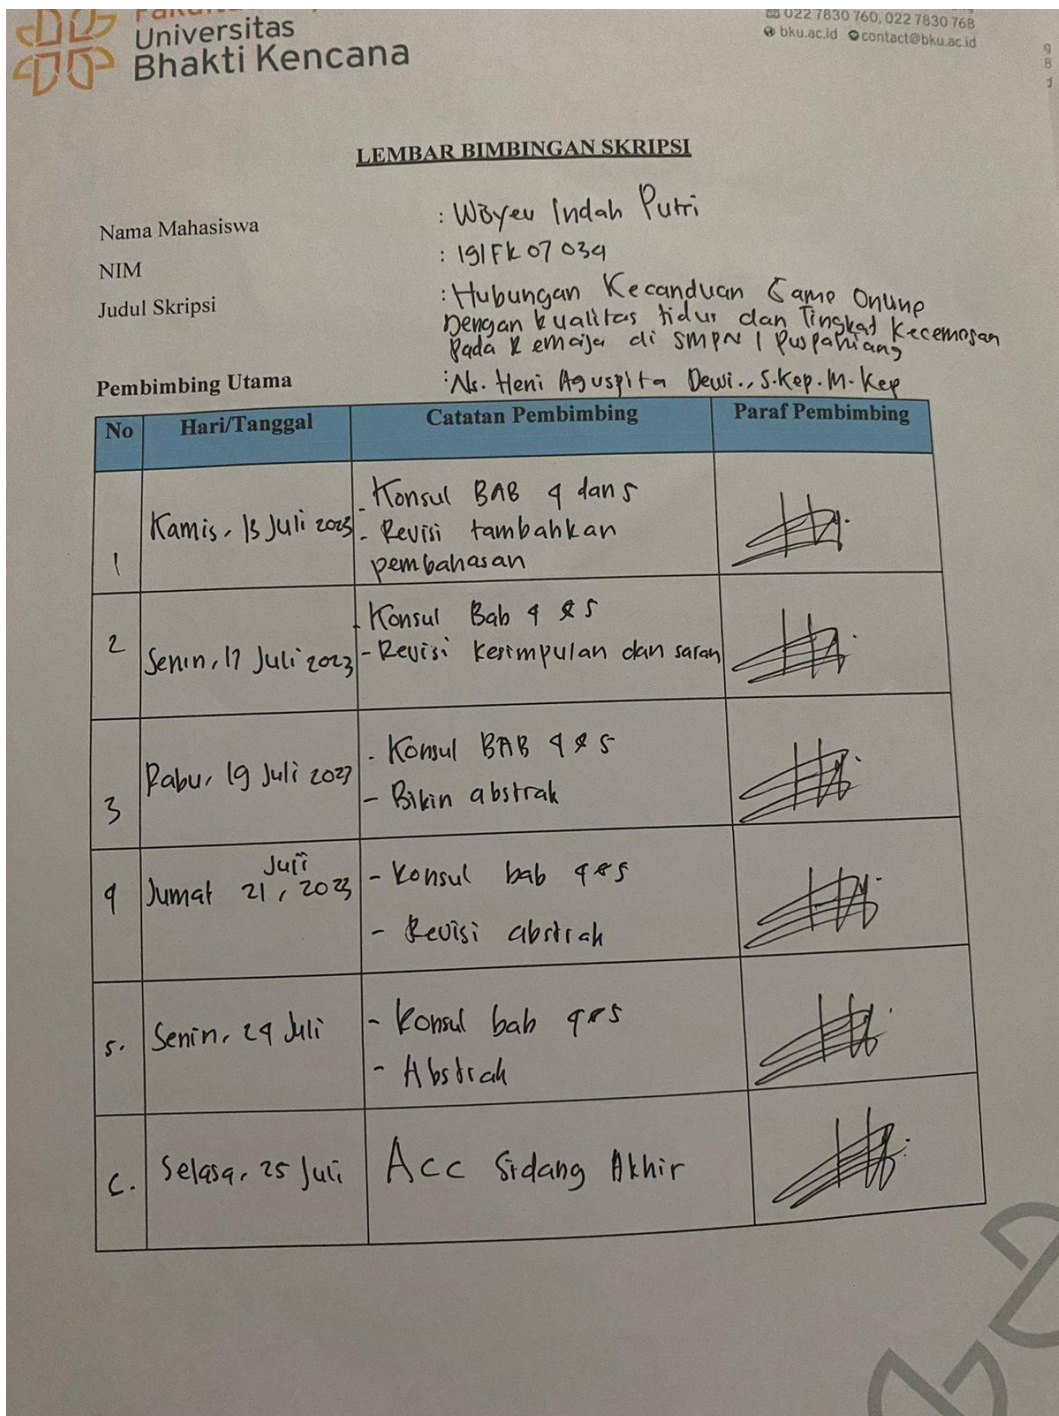 Universitas
Bhakti Kencana
022 7830 760, 022 7830 768
bku.ac.id contact@bku.ac.id
LEMBAR BIMBINGAN SKRIPSI
Nama Mahasiswa : Indah Putri
NIM : 191FK07039
Judul Skripsi : Hubungan Kecanduan Game Online
Dengan kualitas tidur dan Tingkat Kecemasan
Pada Remaja di SMPN 1 Puspahiang
Pembimbing Utama : Ns. Heni Aguspita Dewi., S.Kep. M. Kep
No Hari/Tanggal Catatan Pembimbing Paraf Pembimbing
1 Kamis, 13 Juli 2023 - Konsul BAB 4 dan 5
- Revisi tambahkan
pembahasan
2 Senin, 17 Juli 2023 - Konsul Bab 4 & 5
- Revisi kesimpulan dan saran
3 Rabu, 19 Juli 2023 - Konsul BAB 4 & 5
- Bikin abstrak
4 Jumat 21 Juli, 2023 - Konsul bab 4 & 5
- Revisi abstrak
5. Senin, 24 Juli - Konsul bab 4 & 5
- Abstrak
6. Selasa, 25 Juli Acc Sidang Akhir